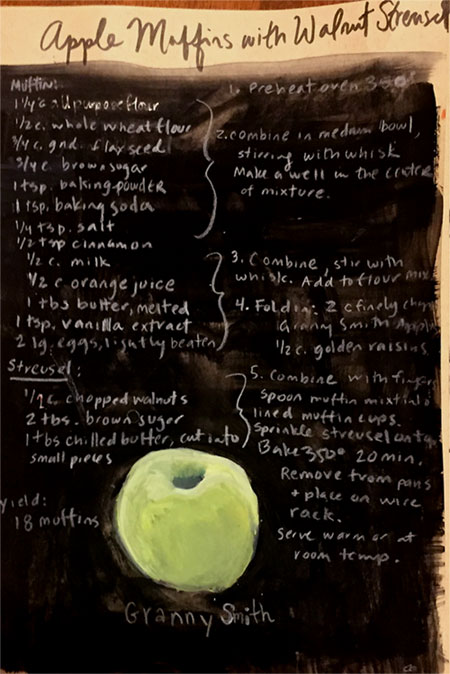 Apple Muffins with Walnut Streusel
Muffin:
1 1/4 c. allpurpose flour
1/2 c. whole wheat flour
3/4 c. gnd. flax seed
3/4 c. brown sugar
1 tsp. baking powder
1 tsp. baking soda
1/4 tsp. salt
1/2 tsp cinnamon
1/2 c. milk
1/2 c orange juice
1 tbs butter, melted
1 tsp. vanilla extract
2 lg. eggs, lightly beaten
Streusel:
1/2 c. chopped walnuts
2 tbs. brown suger
1 tbs chilled butter, cut into
small pieces
yield:
18 muffins
1. Preheat oven 350°
2. combine in medium bowl,
stirring with whisk
Make a well in the center
of mixture.
3. Combine, stir with
whisk. Add to flour mix
4. Fold in: 2 c finely chop
Granny Smith Apple
1/2 c. golden raisins.
5. Combine with finger
spoon muffin mixt into
lined muffin cups.
sprinkle streusel onto
Bake 350° 20 min.
Remove from pans
+ place on wire
rack.
Serve warm or at
room temp.
Granny Smith